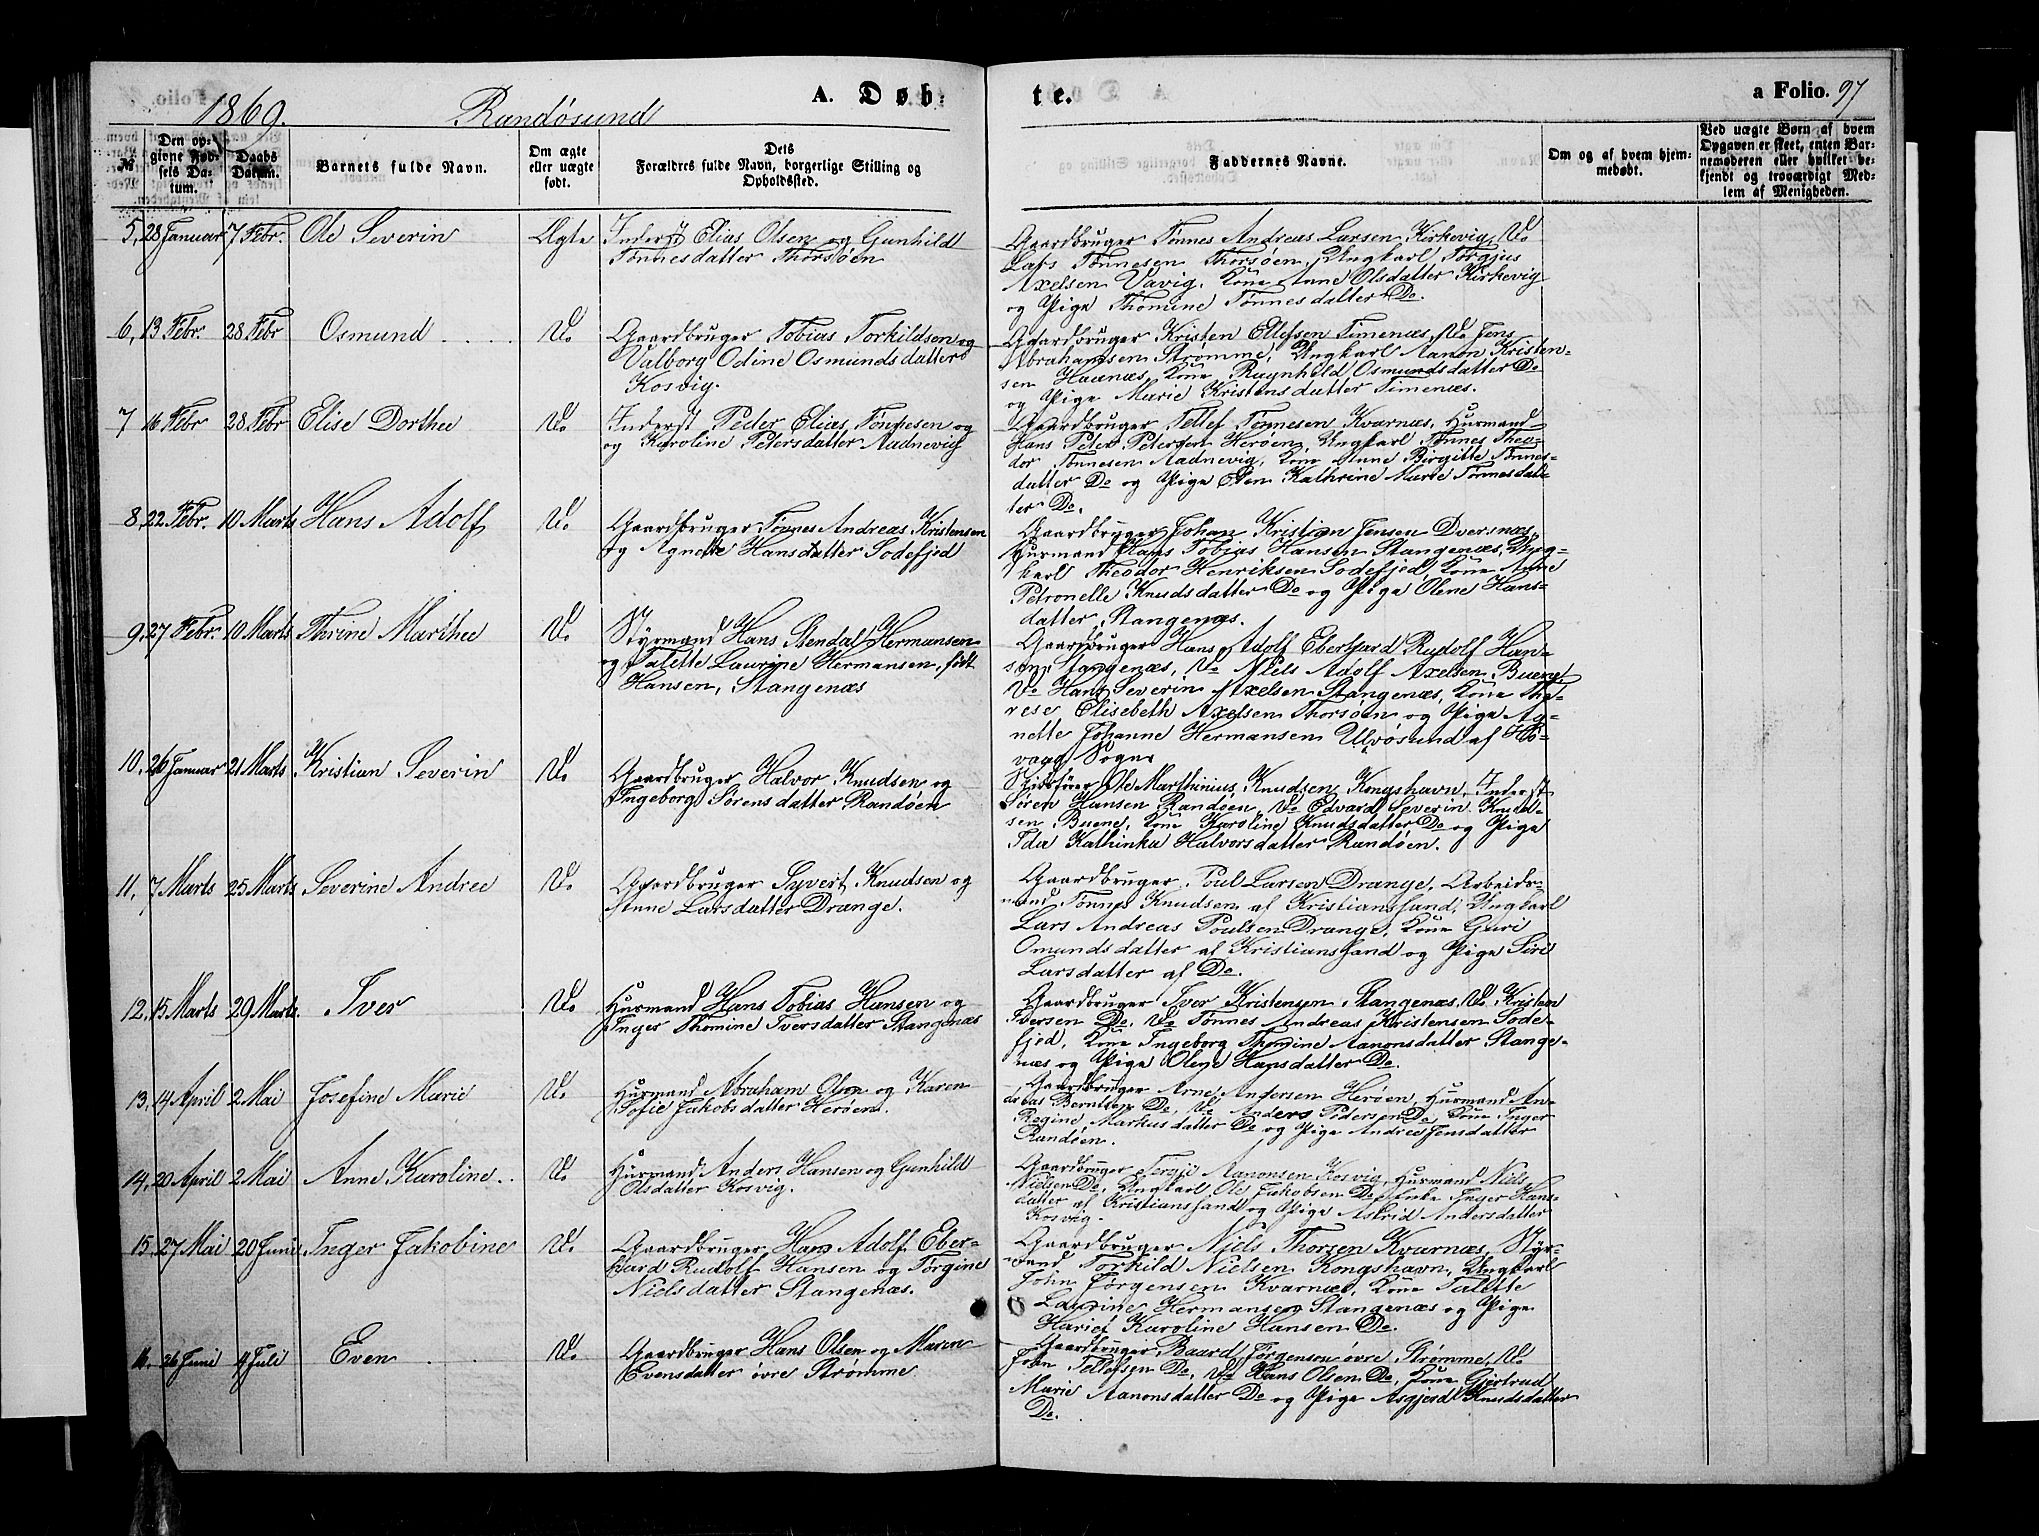 1869. Randøsund A. Døb- te. a Folio. 97
№
Den op-
givne Fød-
sels Da-
tum.
Daabs
Datum.
Barnets fulde Navn.
Om ægte
eller uægte
født.
Dets
Forældres fulde Navn, borgerlige Stilling og
Opholdssted.
Faddernes Navne.
Om og af hvem hjem-
mebøbt.
Ved uægte Børn af hvem
Opgaven er skeet, enten Bar-
nemoderen eller hvilket be-
kjendt og troværdigt Med-
lem af Menigheden.
5, 28 Januar 7 Febr. Ole Severin Ægte
Inderst Elias Olsen og Gunhild
Tønnesdatter Thorsøen
Gaardbruger Tønnes Andreas Larsen Kirkevig, Do
Lars Tønnesen Thorsøen, Ungkarl Torgjus
Axelsen Vavig, Kone Anne Olsdatter Kirkevig
og Pige Thomine Tønnesdatter Do.
6, 13 Febr. 28 Febr Osmund Do
Gaardbruger Tobias Torkildsen og
Valborg Odine Osmundsdatter
Kosvig.
Gaardbruger Kristen Ellefsen Timenæs, Do Jens
Abrahamsen Strømme, Ungkarl Aanon Kristen-
sen Haanæs, Kone Ragnhild Osmundsdatter Do
og Pige Marie Kristensdatter Timenæs.
7 16 Febr 28 Febr Elise Dorthea Do
Inderst Peder Elias Tønnesen og
og Karoline Petersdatter Aadnevig
Gaardbruger Tellef Tønnesen Kvarnæs, Husmand
Hans Peter Petersen Herøen, Ungkarl Tønnes Theo-
dor Tønnesen Aadnevig, Kone Anne Birgitte Tønnes-
datter Do og Pige Elen Kathrine Marie Tønnesdat-
ter Do.
8, 22 Febr. 10 Marts Hans Adolf Do
Gaardbruger Tønnes Andreas Kristensen
og Agnette Hansdatter Sodefjed
Gaardbruger Johan Kristian Jensen Dversnæs,
Husmand Hans Tobias Hansen Stangenæs, Ung-
karl Theodor Henriksen Sodefjed, Kone Anne
Petronelle Knudsdatter Do og Pige Olene Hans-
datter, Stangenæs.
9, 27 Febr. 10 Marts Thrine Marthea Do
Styrmand Hans Stendal Hermansen
og Talette Laurine Hermansen, født
Hansen, Stangenæs
Gaardbruger Hans Adolf Eberhard Rudolf Han-
sen Stangenæs, Do Niels Adolf Axelsen Buene,
Do Hans Severin Axelsen Stangenæs, Kone The-
rese Elisebeth Axelsen Thorsøen og Pige Ag-
nette Johanne Hermansen Ulvøsund af Hø-
vaag Sogn
10, 26 Januar 21 Marts Kristian Severin Do
Gaardbruger Halvor Knudsen og
Ingeborg Sørensdatter Randøen
Skibsfører Ole Marthinius Knudsen Kongshavn, Inderst
Søren Hansen Randøen, Do Edvard Severin Knud-
sen Buene, Kone Karoline Knudsdatter Do og Pige
Ida Kathinka Halvorsdatter Randøen.
11, 7 Marts 25 Marts Severine Andrea Do
Gaardbruger Syvert Knudsen og
Anne Larsdatter Drange.
Gaardbruger Poul Larsen Drange, Arbeids-
mand Tønnes Knudsen af Kristianssand, Ungkarl
Lars Andreas Poulsen Drange, Kone Guri
Omundsdatter af Kristianssand og Pige Siri
Larsdatter af Do.
12, 15 Marts 29 Marts Iver Do
Husmand Hans Tobias Hansen og
Inger Thomine Iversdatter Stangenæs
Gaardbruger Iver Kristensen Stangenæs, Do Kristen
Iversen Do, Do Tønnes Andreas Kristensen Sode-
fjed, Kone Ingeborg Thomine Aanonsdatter Stange-
næs og Pige Olene Hansdatter Do.
13, 14 April 2 Mai Josefine Marie Do
Husmand Abraham Olsen og Karen
Sofie Jakobsdatter Herøen.
Gaardbruger Arne Andersen Herøen, Husmand An-
dreas Berntsen Do, Do Anders Pedersen Do, Kone Inger
Regine Markusdatter Do og Pige Andrea Jensdatter
Randøen.
14, 20 April 2 Mai Anne Karoline Do
Husmand Anders Hansen og Gunhild
Olsdatter Kosvig.
Gaardbruger Tergje Aanonsen Kosvig, Husmand Niels
Nielsen Do, Ungkarl Ole Jakobsen Do, Enke Inger Hans-
datter af Kristianssand og Pige Astrid Andersdatter
Kosvig.
15, 27 Mai 20 Juni Inger Jakobine Do
Gaardbruger Hans Adolf Eber-
hard Rudolf Hansen og Torgine
Nielsdatter Stangenæs.
Gaardbruger Niels Thorsen Kvarnæs, Styr-
mand Torkild Nielsen Kongshavn, Ungkarl
John Jørgensen Kvarnæs, Kone Talette
Laurine Hermansen Stangenæs og Pige
Hariet Karoline Hansen Do.
16, 26 Juni 4 Juli Even Do
Gaardbruger Hans Olsen og Maren
Evensdatter øvre Strømme
Gaardbruger Baard Jørgensen øvre Strømme, Do
John Tellefsen Do, Do Hans Olsen Do, Kone Gjertrud
Marie Aanonsdatter Do og Pige Asgjerd Knudsdatter
Do.